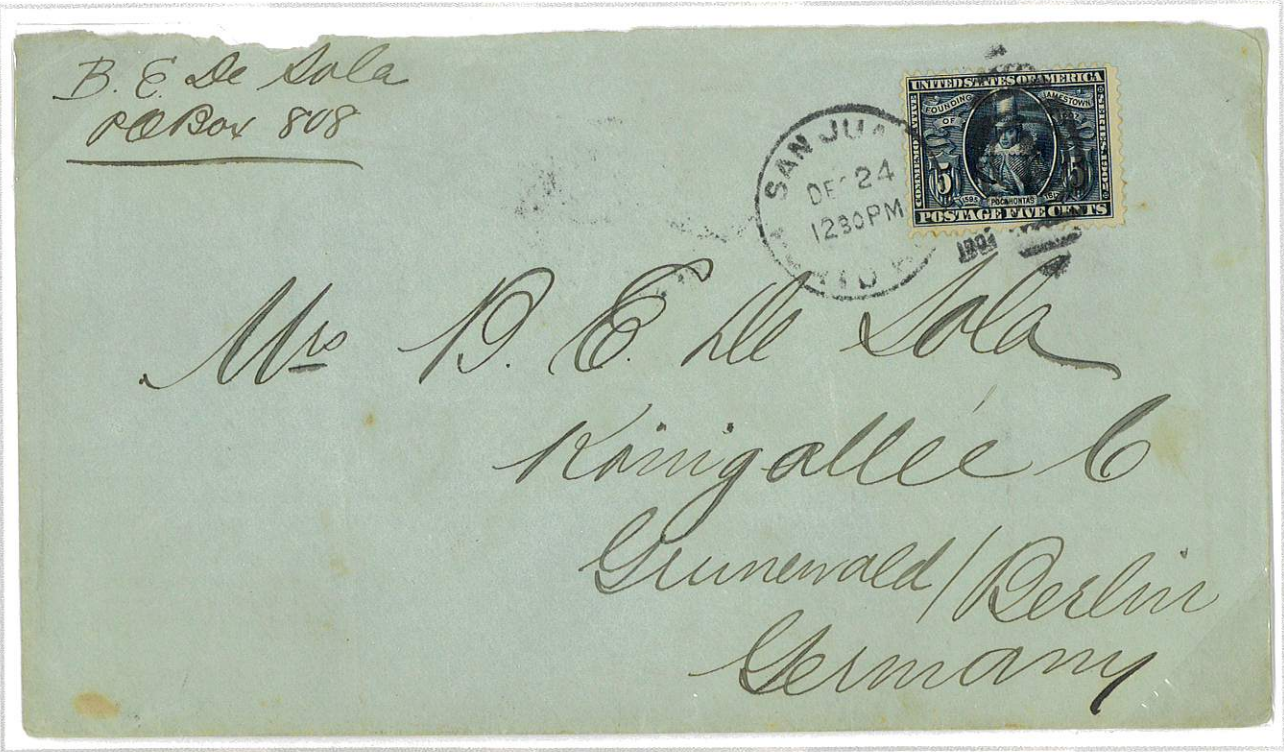 B. E. De Sola
PO Box 808
SAN JUA
DEC 24
1230PM
UNITED STATES OF AMERICA
FOUNDING OF JAMESTOWN
COMMEMORATIVE SERIES 1907
5 5
POCAHONTAS
POSTAGE FIVE CENTS
Mrs B. E. De Sola
Königallée 6
Grunewald/Berlin
Germany